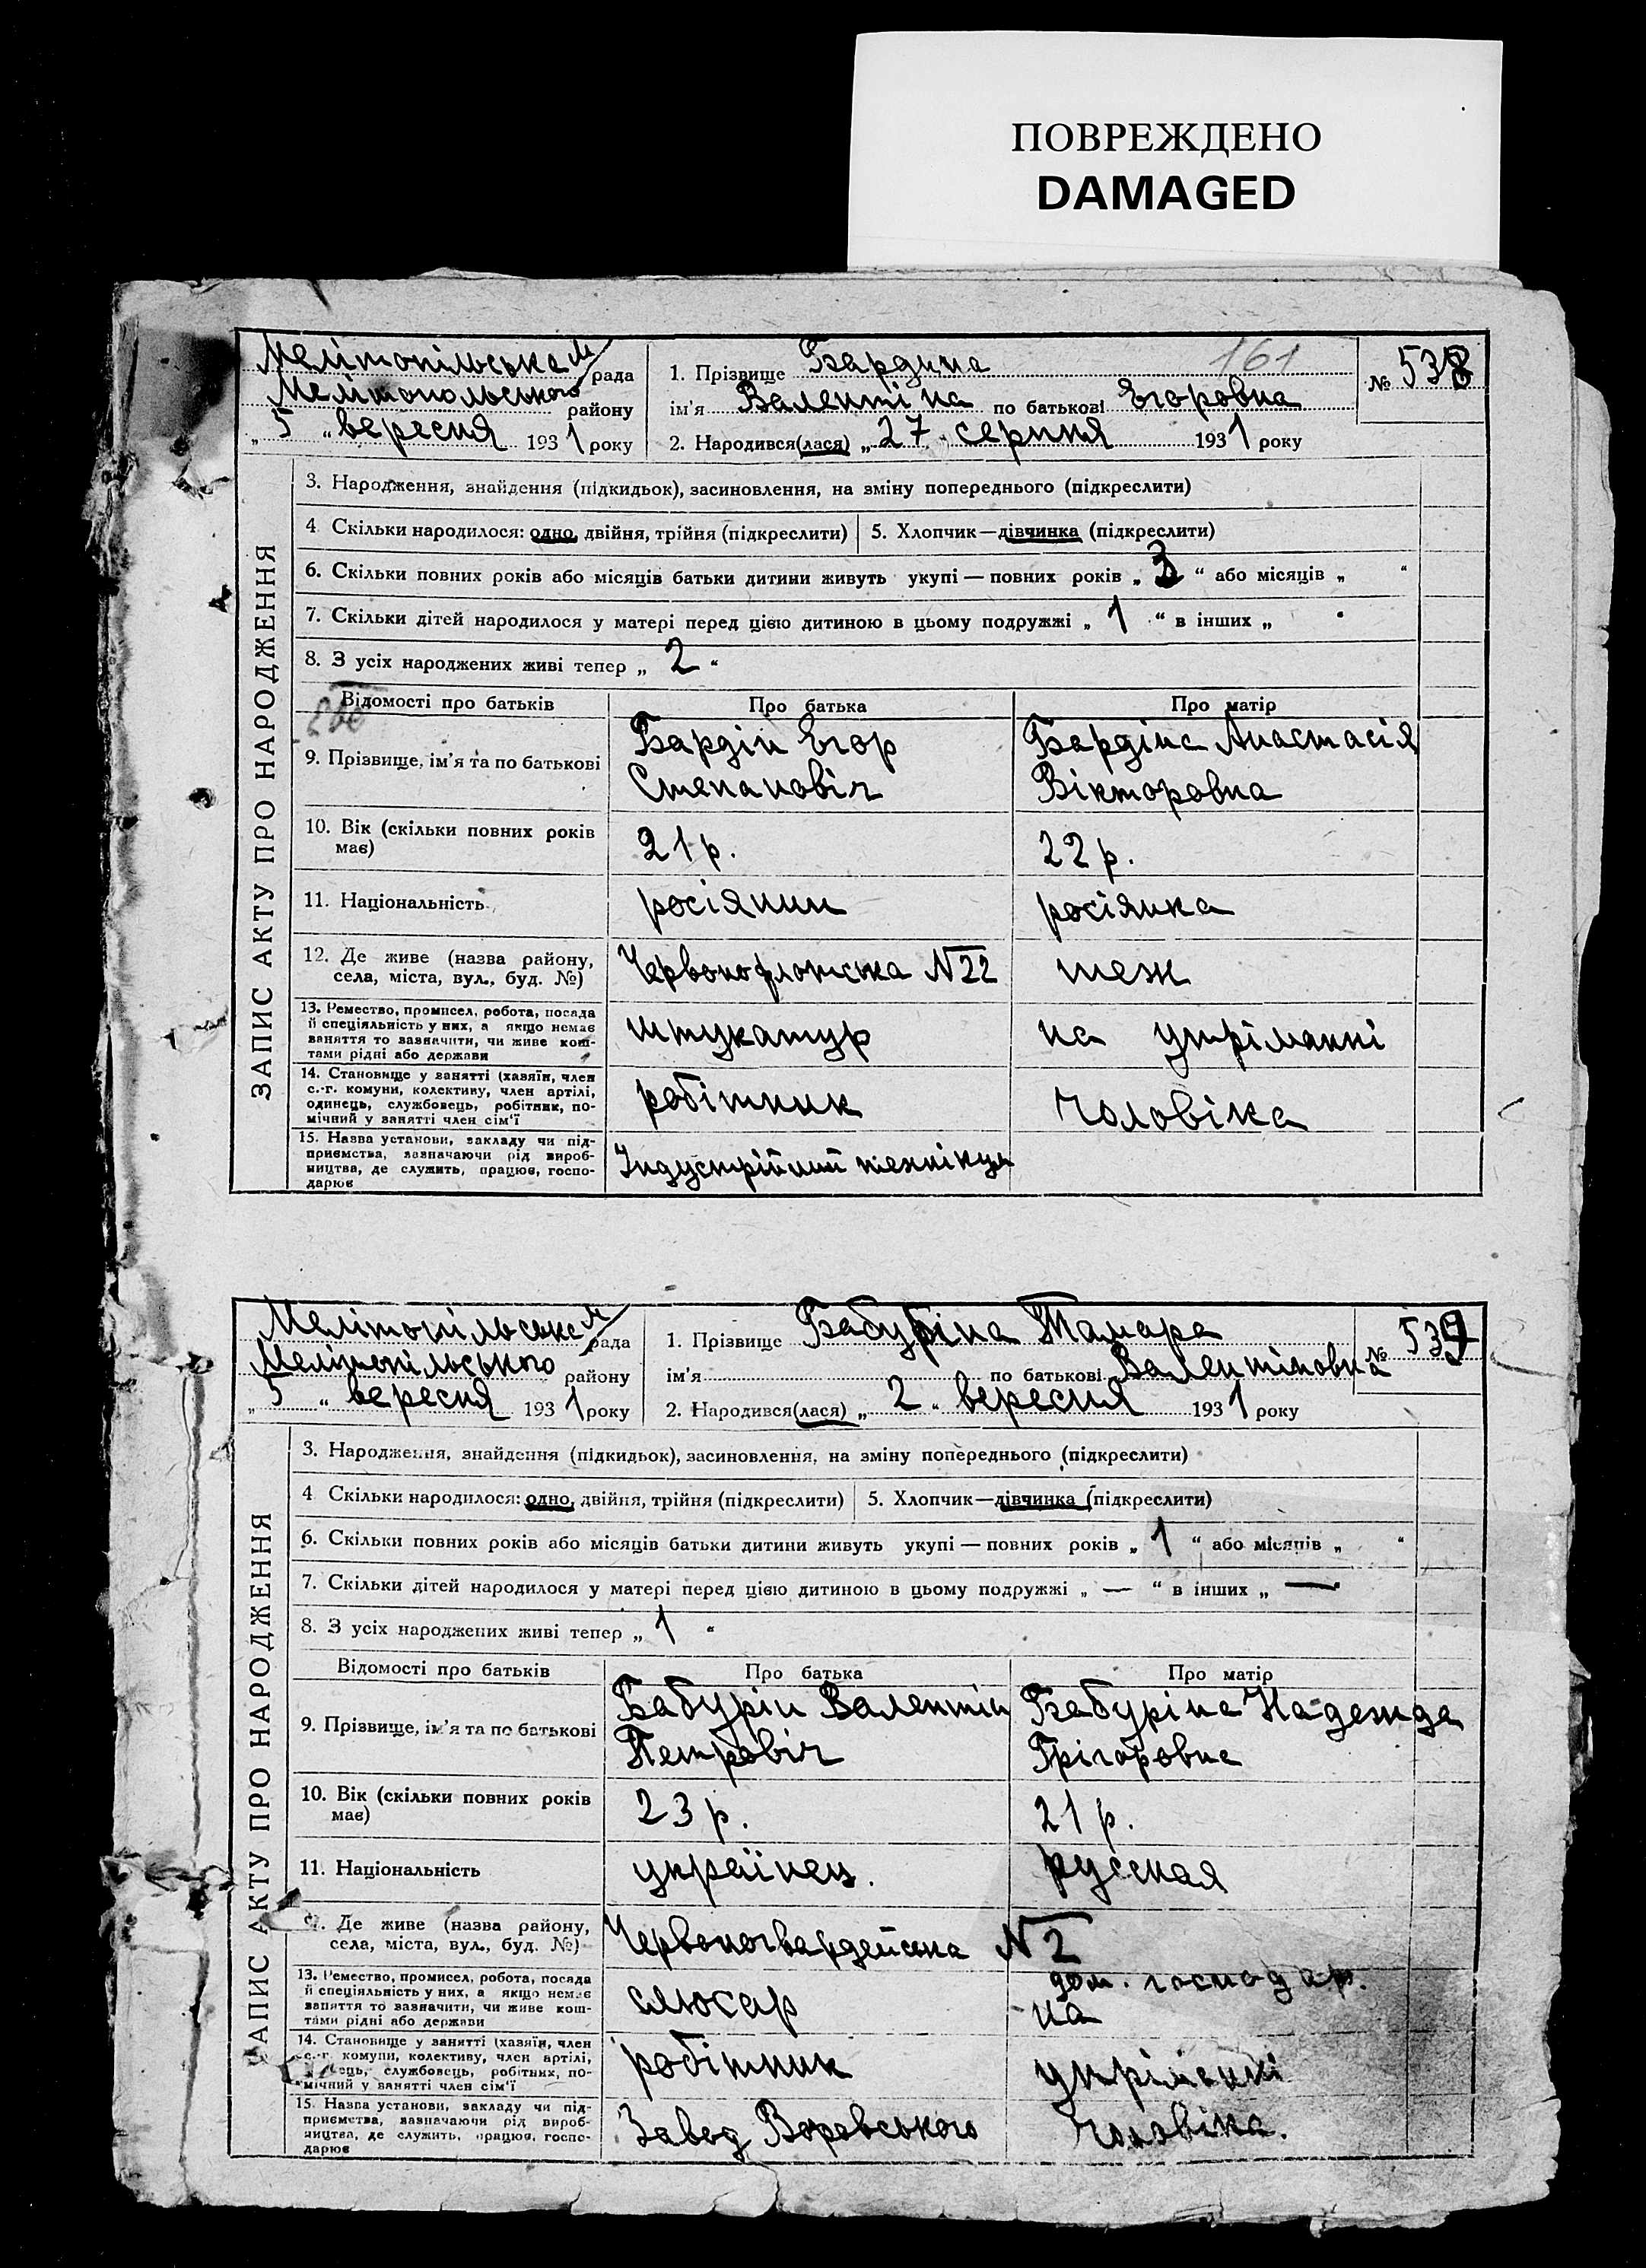 ПОВРЕЖДЕНО
DAMAGED
Мелітопільська м/рада
Мелітопольського району
„ 5 “ вересня 1931 року
1. Прізвище Бардина
161
№ 538
ім'я Валентіна по батькові Єгоровна
2. Народився(лася) „ 27 “ серпня 1931 року
ЗАПИС АКТУ ПРО НАРОДЖЕННЯ
3. Народження, знайдення (підкидьок), засиновлення, на зміну попереднього (підкреслити)
4 Скільки народилося: одно, двійня, трійня (підкреслити) 5. Хлопчик—дівчинка (підкреслити)
6. Скільки повних років або місяців батьки дитини живуть укупі — повних років „ 3 “ або місяців „ “
7. Скільки дітей народилося у матері перед цією дитиною в цьому подружжі „ 1 “ в інших „ “
8. З усіх народжених живі тепер „ 2 “
Відомості про батьків Про батька Про матір
9. Прізвище, ім'я та по батькові
Бардін Єгор
Степановіч
Бардіна Анастасія
Вікторовна
10. Вік (скільки повних років
має)
21 р.
22 р.
11. Національність
росіянин
росіянка
12. Де живе (назва району,
села, міста, вул., буд. №)
Червонофлотська N 22
теж
13. Ремество, промисел, робота, посада
й спеціяльність у них, а якщо немає
заняття то зазначити, чи живе кош-
тами рідні або держави
штукатур
на утріманні
14. Становище у занятті (хазяїн, член
с.-г. комуни, колективу, член артілі,
одинець, службовець, робітник, по-
мічний у занятті член сім'ї
робітник
чоловіка
15. Назва установи, закладу чи під-
приємства, зазначаючи рід вироб-
ництва, де служить, працює, госпо-
дарює
Індустрійний
Мелітопільська м/рада
Мелітопільського району
„ 5 “ вересня 1931 року
1. Прізвище Бабуріна Тамара
№ 539
ім'я по батькові Валентіновна
2. Народився(лася) „ 2 “ вересня 1931 року
ЗАПИС АКТУ ПРО НАРОДЖЕННЯ
3. Народження, знайдення (підкидьок), засиновлення, на зміну попереднього (підкреслити)
4 Скільки народилося: одно, двійня, трійня (підкреслити) 5. Хлопчик—дівчинка (підкреслити)
6. Скільки повних років або місяців батьки дитини живуть укупі — повних років „ 1 “ або місяців „ “
7. Скільки дітей народилося у матері перед цією дитиною в цьому подружжі „ — “ в інших „ — “
8. З усіх народжених живі тепер „ 1 “
Відомості про батьків Про батька Про матір
9. Прізвище, ім'я та по батькові
Бабурін Валентін
Петровіч
Бабуріна Надежда
Грігоровна
10. Вік (скільки повних років
має)
23 р.
21 р.
11. Національність
українец.
русская
12. Де живе (назва району,
села, міста, вул., буд. №)
Червоногвардейська N 2
13. Ремество, промисел, робота, посада
й спеціяльність у них, а якщо немає
заняття то зазначити, чи живе кош-
тами рідні або держави
слюсар
дом. господар.
на
14. Становище у занятті (хазяїн, член
с.-г. комуни, колективу, член артілі,
одинець, службовець, робітник, по-
мічний у занятті член сім'ї
робітник
утріманні
15. Назва установи, закладу чи під-
приємства, зазначаючи рід вироб-
ництва, де служить, працює, госпо-
дарює
Завод Воровського
чоловіка.